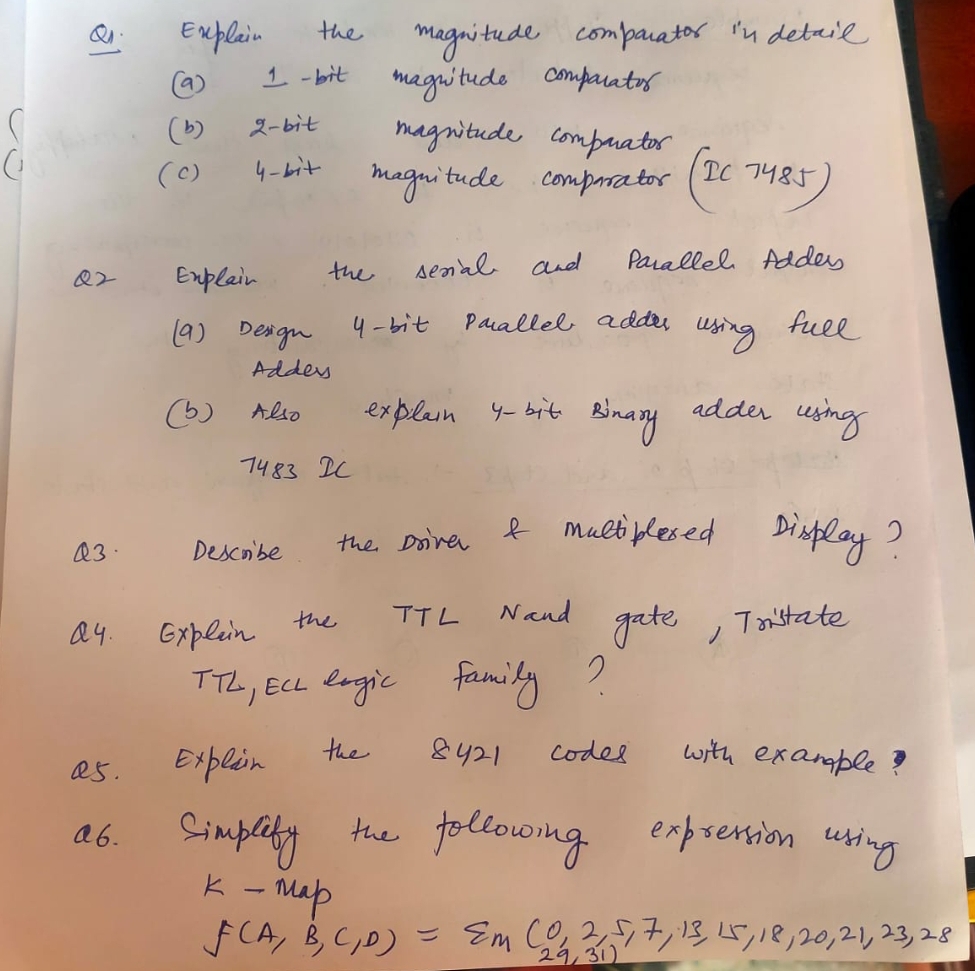 Q1. Explain the magnitude comparator in detail
(a) 1-bit magnitude comparator
(b) 2-bit magnitude comparator
(c) 4-bit magnitude comparator (IC 7485)
Q2 Explain the serial and Parallel Adders
(a) Design 4-bit Parallel adder using full
Adders
(b) Also explain 4-bit Binary adder using
7483 IC
Q3. Describe the Driver & Multiplexed Display?
Q4. Explain the TTL Nand gate, Tristate
TTL, ECL logic family?
Q5. Explain the 8421 codes with example?
Q6. Simplify the following expression using
K-Map
f(A, B, C, D) = Σm (0, 2, 5, 7, 13, 15, 18, 20, 21, 23, 28
29, 31)